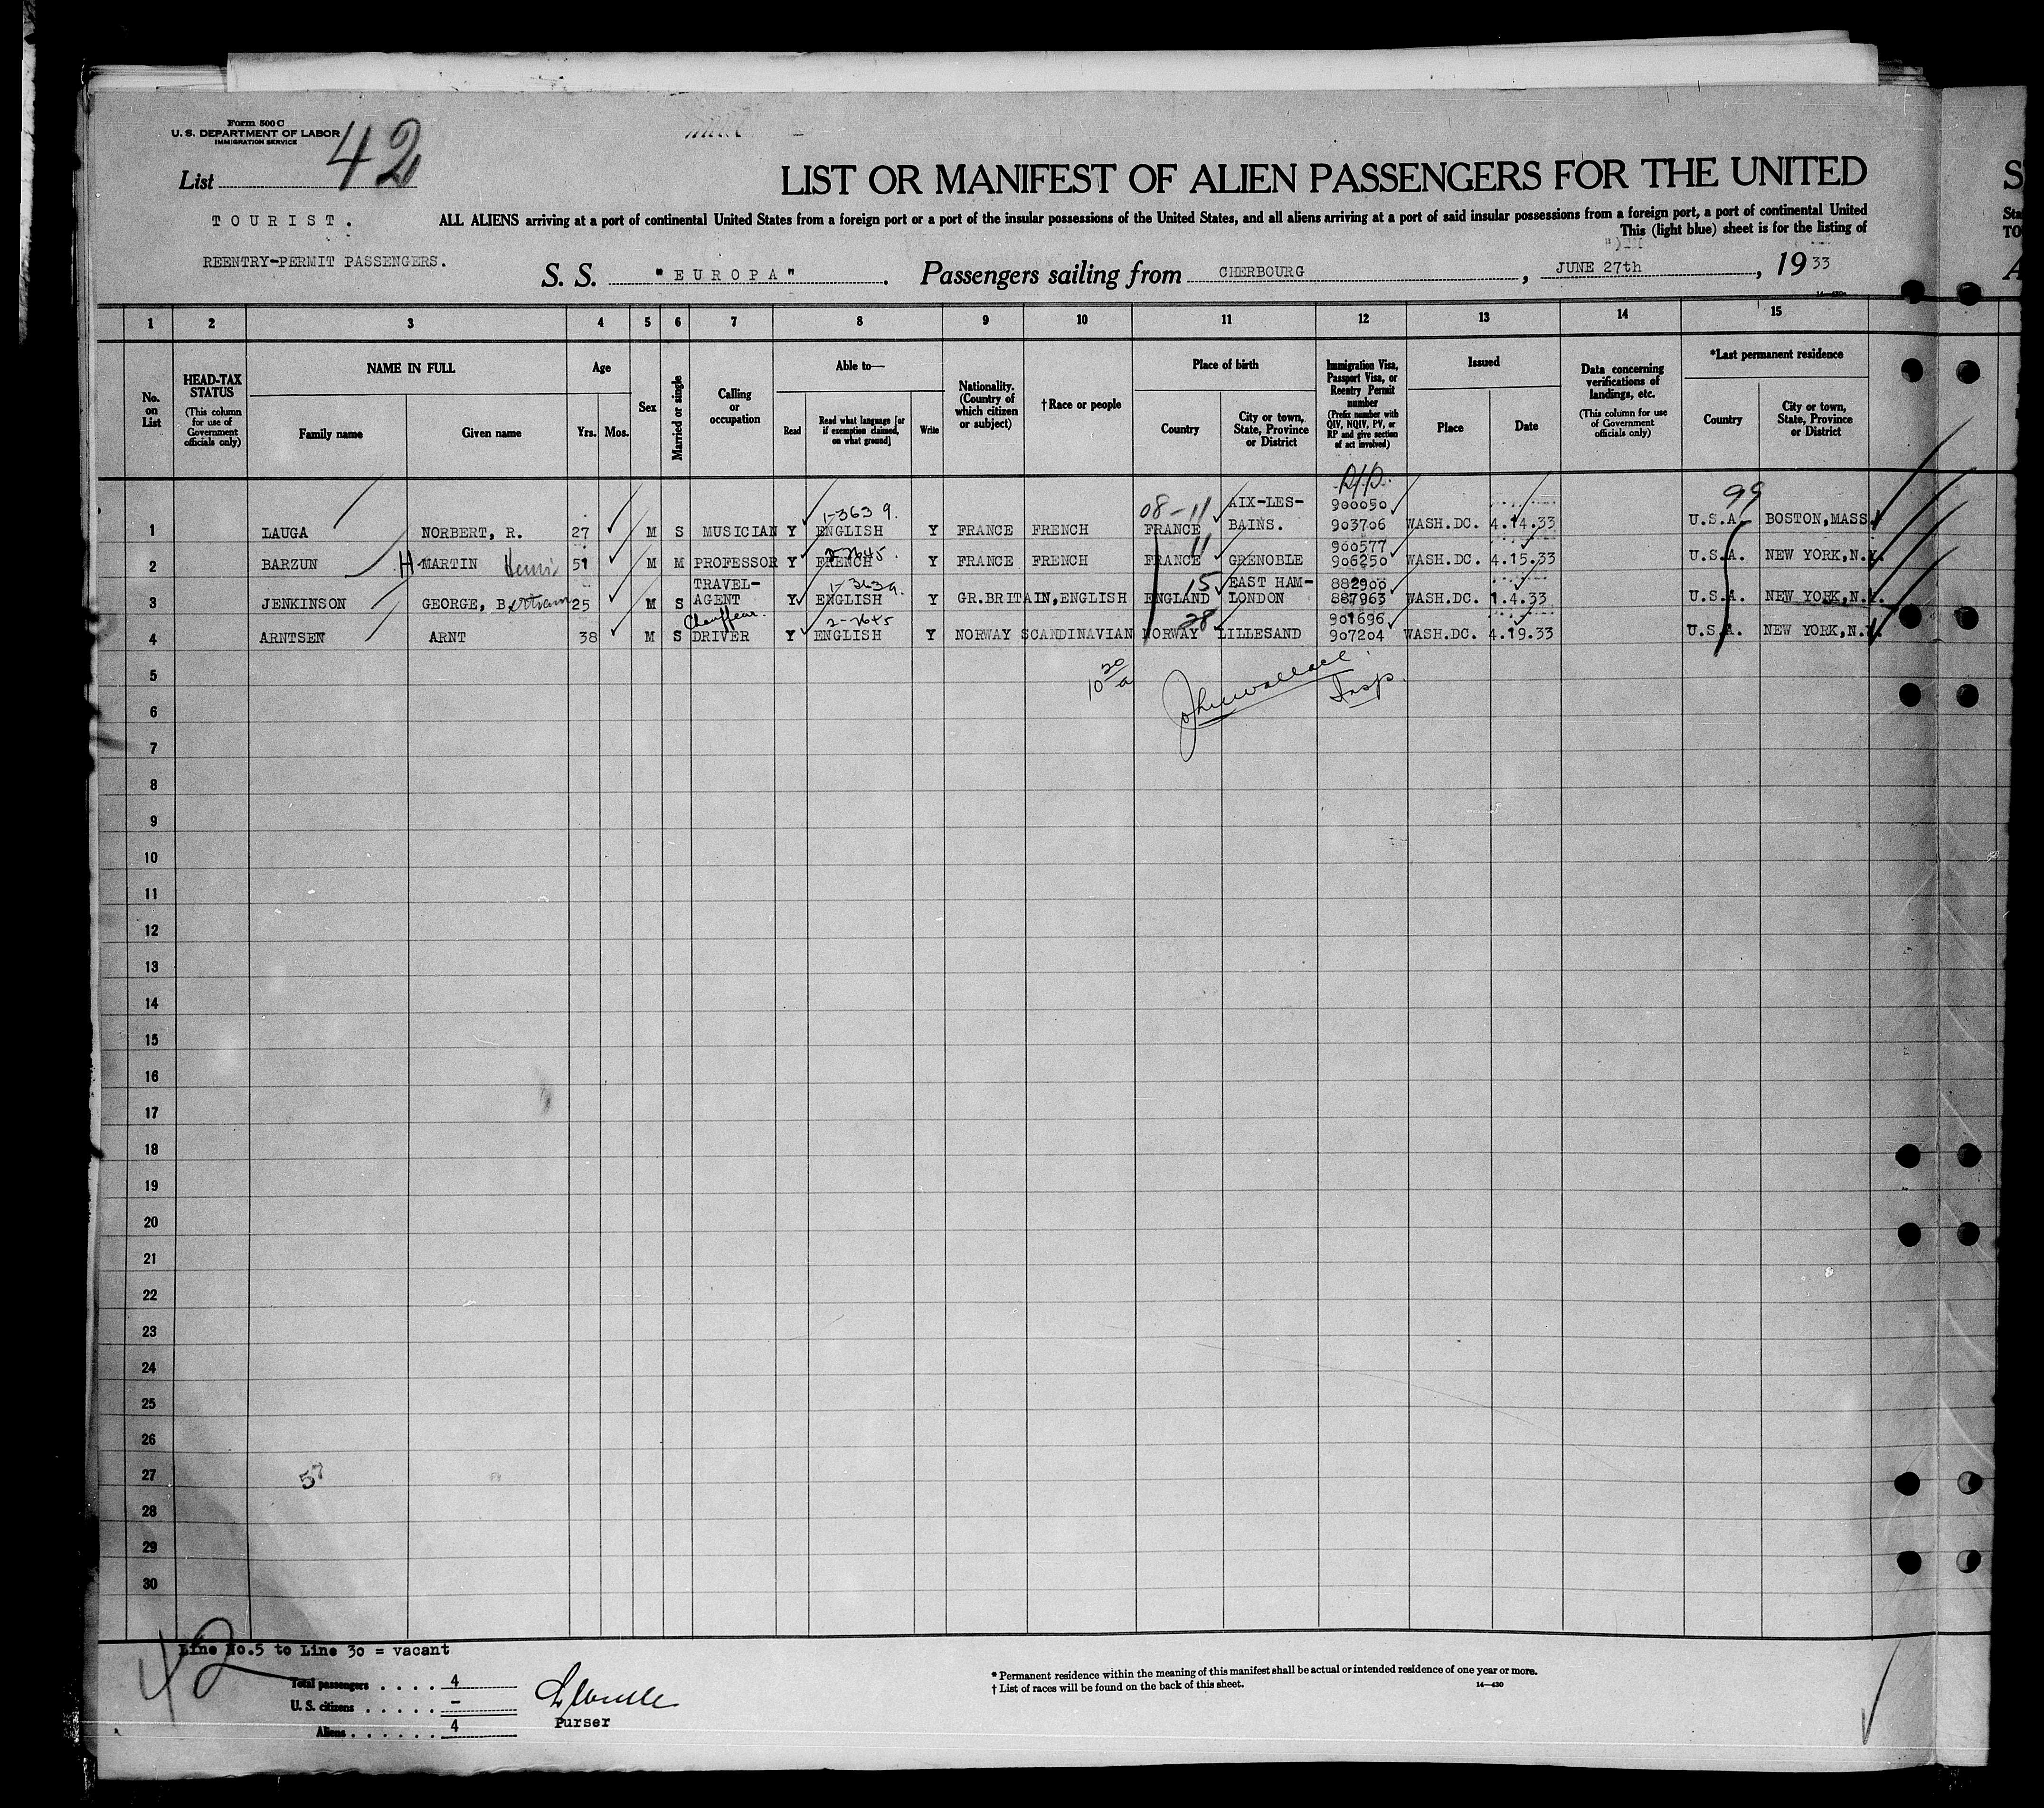 Form 500 C
U. S. DEPARTMENT OF LABOR
IMMIGRATION SERVICE
List 42
LIST OR MANIFEST OF ALIEN PASSENGERS FOR THE UNITED
S
TOURIST.
ALL ALIENS arriving at a port of continental United States from a foreign port or a port of the insular possessions of the United States, and all aliens arriving at a port of said insular possessions from a foreign port, a port of continental United
Sta
This (light blue) sheet is for the listing of
TO
REENTRY-PERMIT PASSENGERS.
S. S. "EUROPA". Passengers sailing from CHERBOURG, JUNE 27th, 1933
A
14—430
1 2 3 4 5 6 7 8 9 10 11 12 13 14 15
No. on List
HEAD-TAX STATUS
(This column for use of Government officials only)
NAME IN FULL
Family name
Given name
Age
Yrs. Mos.
Sex
Married or single
Calling or occupation
Able to—
Read
Read what language [or if exemption claimed, on what ground]
Write
Nationality. (Country of which citizen or subject)
†Race or people
Place of birth
Country
City or town, State, Province or District
Immigration Visa, Passport Visa, or Reentry Permit number
(Prefix number with QIV, NQIV, PV, or RP and give section of act involved)
Issued
Place
Date
Data concerning verifications of landings, etc.
(This column for use of Government officials only)
*Last permanent residence
Country
City or town, State, Province or District
99
1-363 9. 08-11 AIX-LES- 900050
1 LAUGA NORBERT, R. 27 M S MUSICIAN Y ENGLISH Y FRANCE FRENCH FRANCE BAINS. 903706 WASH.DC. 4.14.33 U.S.A. BOSTON,MASS.
2-2645. 11 900577
2 BARZUN H MARTIN Henri 51 M M PROFESSOR Y FRENCH Y FRANCE FRENCH FRANCE GRENOBLE 906250 WASH.DC. 4.15.33 U.S.A. NEW YORK,N.Y.
TRAVEL- 1-363 9. 15 EAST HAM- 882900
3 JENKINSON GEORGE, Bertram 25 M S AGENT Y ENGLISH Y GR.BRITAIN,ENGLISH ENGLAND LONDON 887963 WASH.DC. 1.4.33 U.S.A. NEW YORK,N.Y.
Chauffeur. 2-2645 28 901696
4 ARNTSEN ARNT 38 M S DRIVER Y ENGLISH Y NORWAY SCANDINAVIAN NORWAY LILLESAND 907204 WASH.DC. 4.19.33 U.S.A. NEW YORK,N.Y.
5
10 20/a John Wallace Insp.
6
7
8
9
10
11
12
13
14
15
16
17
18
19
20
21
22
23
24
25
26
27 57
28
29
30
42
Line No.5 to Line 30 = vacant
Total passengers . . . . 4
U. S. citizens . . . . . –
Aliens . . . . . . 4
Purser
* Permanent residence within the meaning of this manifest shall be actual or intended residence of one year or more.
† List of races will be found on the back of this sheet.
14—430